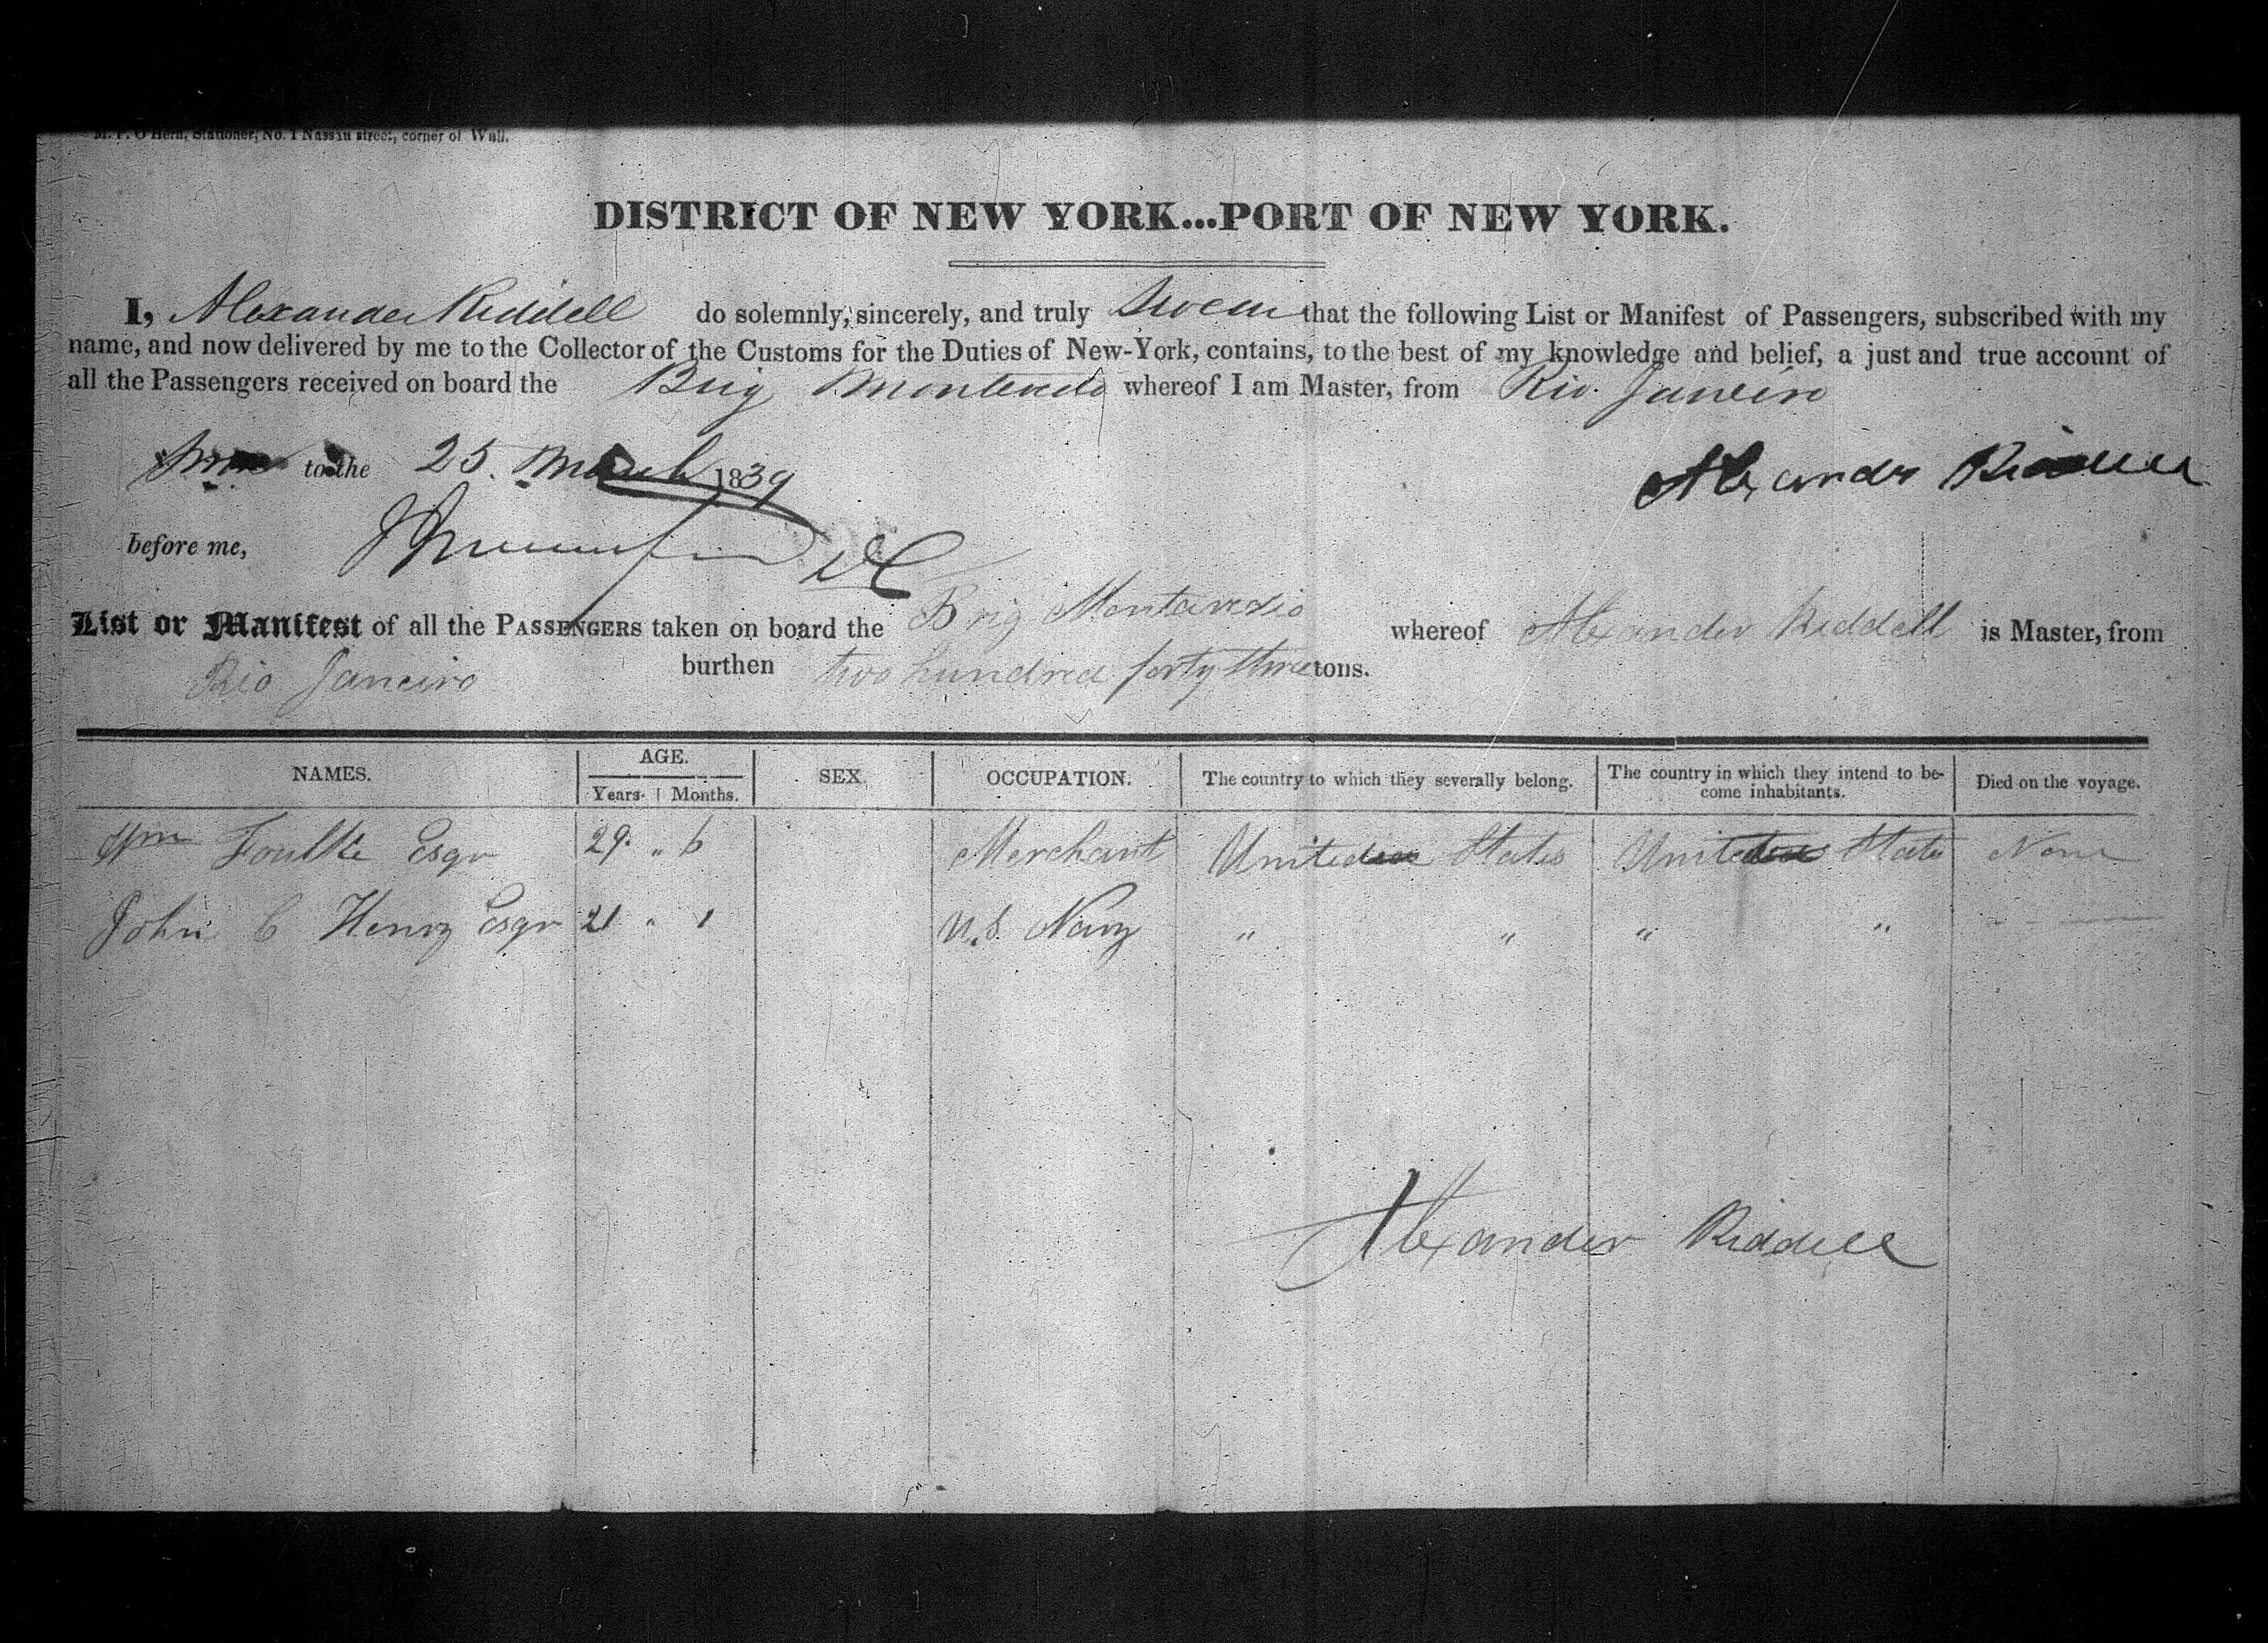 M. P. O'Hern, Stationer, No. 1 Nassau street, corner of Wall.
DISTRICT OF NEW YORK...PORT OF NEW YORK.
I, Alexander Riddell do solemnly, sincerely, and truly Swear that the following List or Manifest of Passengers, subscribed with my
name, and now delivered by me to the Collector of the Customs for the Duties of New-York, contains, to the best of my knowledge and belief, a just and true account of
all the Passengers received on board the Brig whereof I am Master, from Rio Janeiro
to the 25 March 1839
Alexander Riddell
before me,
List or Manifest of all the PASSENGERS taken on board the Brig whereof Alexander Riddell is Master, from
Rio Janeiro burthen two hundred forty three tons.
NAMES. AGE. SEX. OCCUPATION. The country to which they severally belong. The country in which they intend to be- Died on the voyage.
Years. Months. come inhabitants.
Wm Foulke Esqr 29 " 6 Merchant United States United States None
John C Henry Esqr 21 " 1 U.S. Navy " " " "
Alexander Riddell